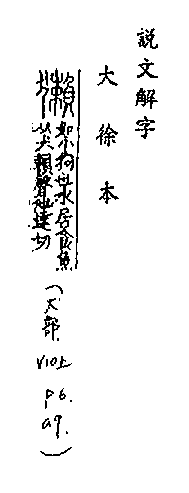 說文解字
大徐本
獺
如小狗也水居食魚
从犬賴聲他達切
(犬部
V10上
p6.
a9.)